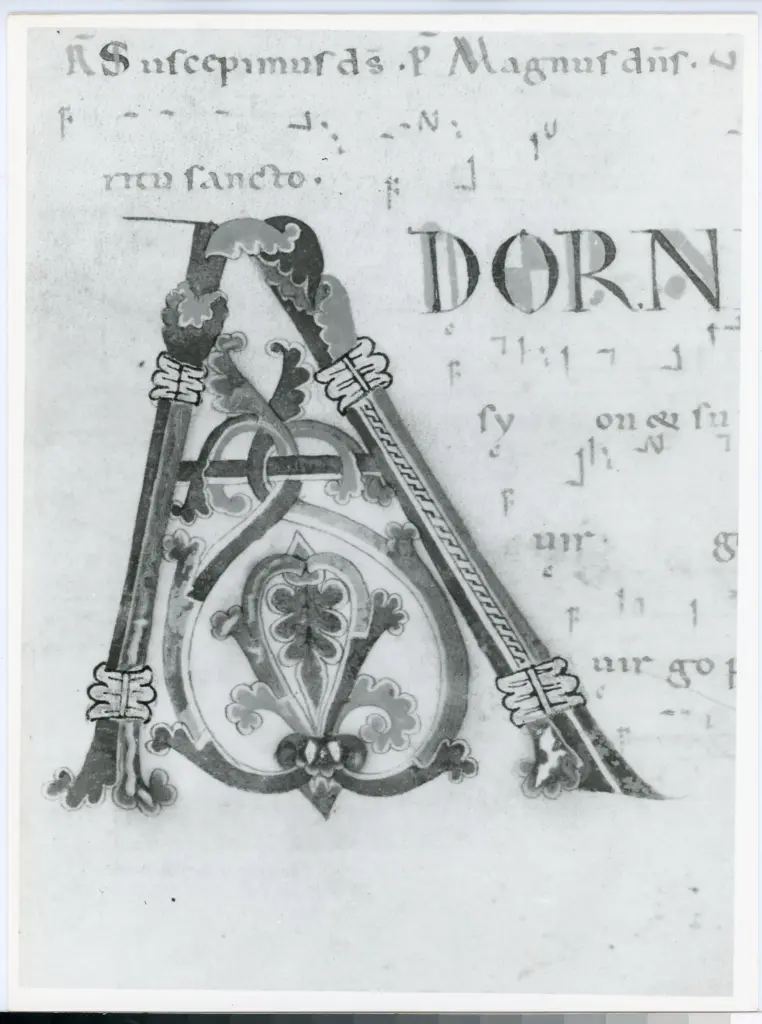 R̄ Suscepimus ds̄ · P̄ Magnus dn̄s ·
ritu sancto ·
ADORN
sy on & su
uir g
uir go p